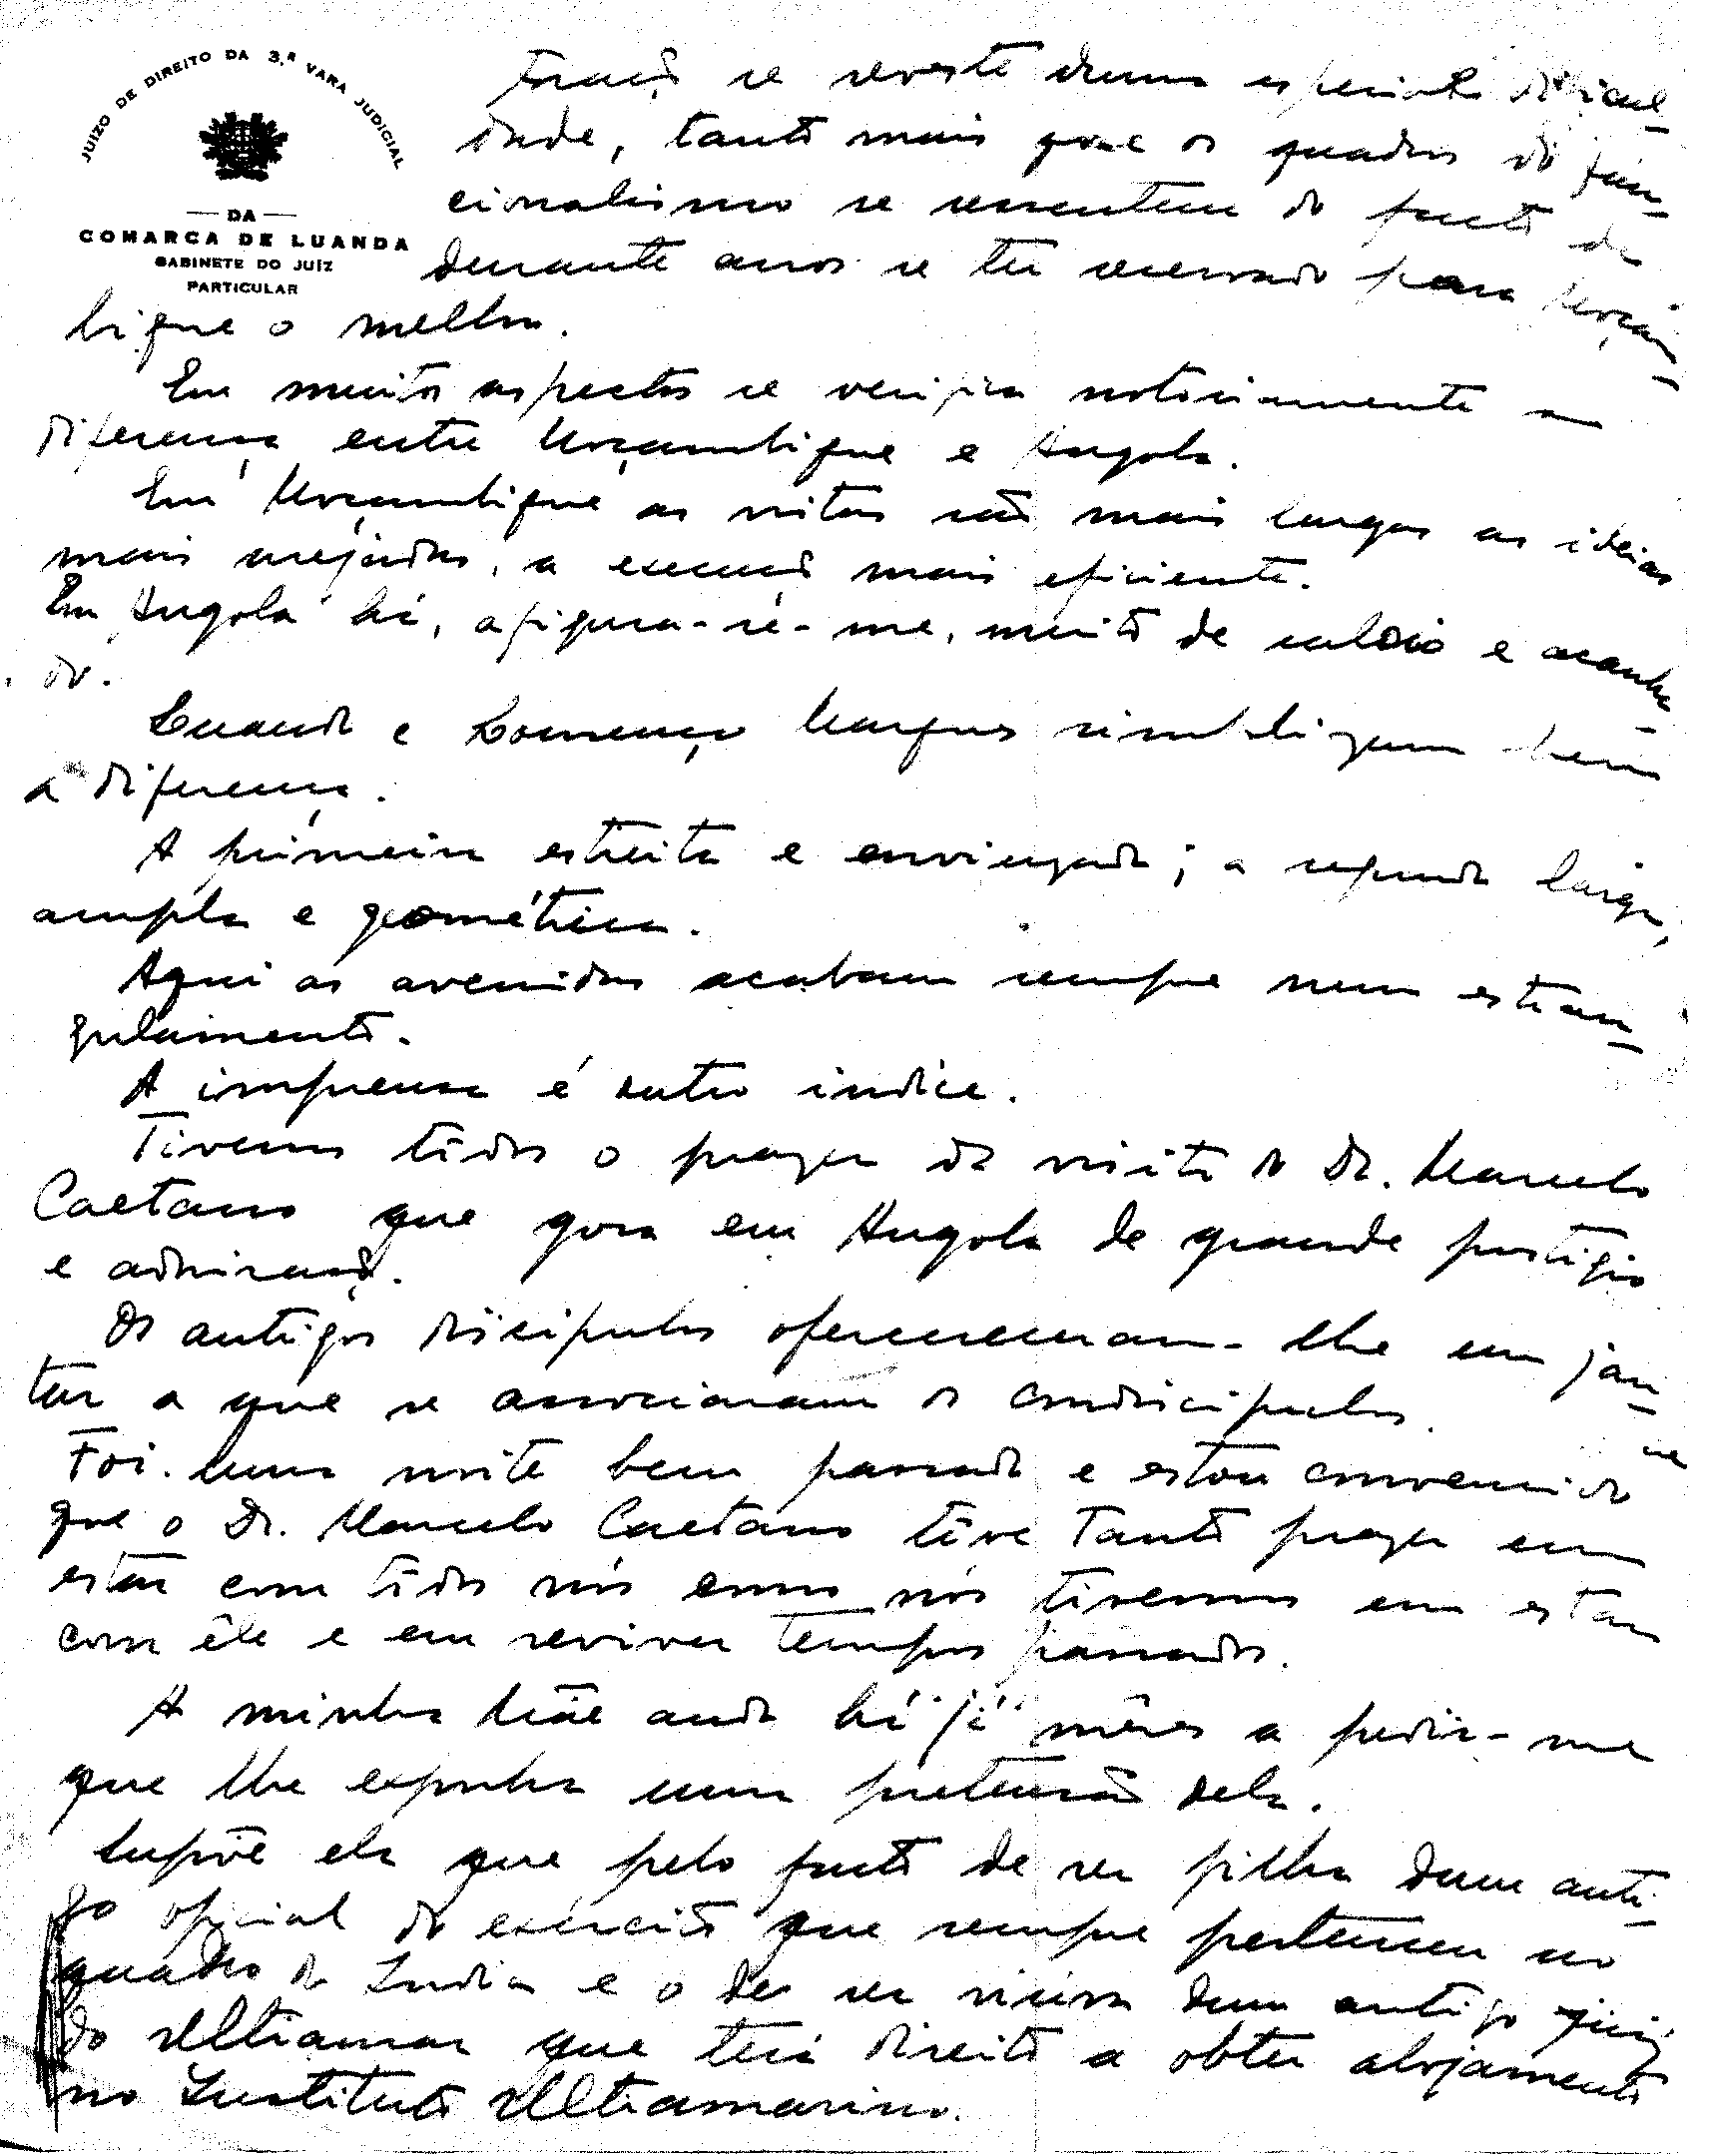 JUIZO DE DIREITO DA 3.ª VARA JUDICIAL
DA
COMARCA DE LUANDA
GABINETE DO JUIZ
PARTICULAR
se reveste duma especial dificul-
dade, tanto mais que os quadros do fun-
cionalismo se ressentem do facto de
durante anos se ter reservado para Moçam-
bique o melhor.
Em muitos aspectos se verifica notoriamente a
diferença entre Moçambique e Angola.
Em Moçambique as vistas são mais largas as ideias
mais arejadas, a execução mais eficiente.
Em Angola há, afigura-se-me, muito de saloio e acanha-
do.
Luanda e Lourenço Marques simbolizam bem
a diferença.
A primeira estreita e enviezada; a segunda larga,
ampla e geométrica.
Aqui as avenidas acabam sempre num estran-
gulamento.
A imprensa é outro indice.
Tivemos todos o prazer da visita do Dr. Marcelo
Caetano que goza em Angola de grande prestigio
e admiração.
Os antigos discipulos ofereceram-lhe um jan-
tar a que se associaram os condiscipulos.
Foi uma noite bem passada e estou convencido
que o Dr. Marcelo Caetano têve tanto prazer em
estar com todos nós como nós tivemos em estar
com êle e em reviver tempos passados.
A minha Mãe anda há já mêses a pedir-me
que lhe exponha uma pretensão dela.
Supõe ela que pelo facto de ser filha dum anti-
go oficial do exército que sempre pertenceu ao
quadro da India e o de ser viuva dum antigo juiz
do Ultramar que terá direito a obter alojamento
no Instituto Ultramarino.